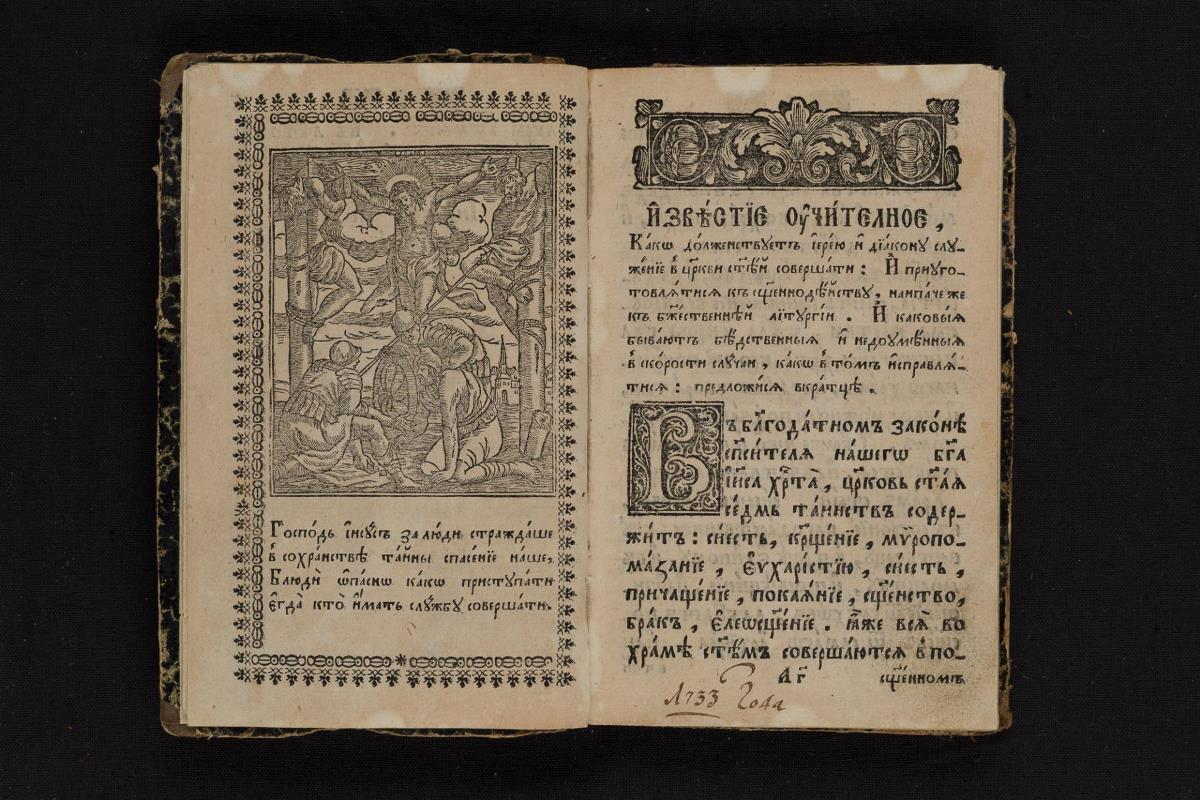 Господь їисусъ за люди страждаше
в̾ сохранствѣ тайны спасенїе наше,
Блюди ѡпаснѡ какѡ приступати
є҆гда̀ кто̀ и҆мать слу́жбу совершати.
И҆ЗВѢ́СТЇЕ ОУ҆ЧИ́ТЕЛНОЕ,
Какѡ до́лженствуетъ і҆ере́ю, и҆ дїа́кону слу-
же́нїе в̾ цр҃кви ст҃ѣй соверша́ти: И҆ приуго-
товля́тися къ сщ҃еннодѣ́йству, наипаче же
къ бж҃ественнѣй лїтургі́и. И҆ каковыя
бываютъ бѣ́дственныя и҆ недоумѣ́нныя
в̾ ско́рости слу́чаи, ка́кѡ в̾ то́мъ и҆справля́-
тися: предложи́ся вкра́тцѣ.
Въ блг҃ода́тномъ зако́нѣ
сп҃си́теля на́шегѡ бг҃а
і҆и҃са хрⷭ҇та̀, цр҃ковь ст҃а́я
се́дмь та́инствъ содер-
жи́тъ: си́есть, крⷭ҇ще́нїе, мѵ̈ропо-
ма́занїе, є҆ѵхарі́стїю, си́есть,
причаще́нїе, покая́нїе, сщ҃е́нство,
бра́къ, є҆леосщ҃е́нїе. Ꙗ҆́же всѧ̀ во
хра́мѣ ст҃ѣ́мъ соверша́ются в̾ по-
А҃г сщ҃енномъ
1733 Года